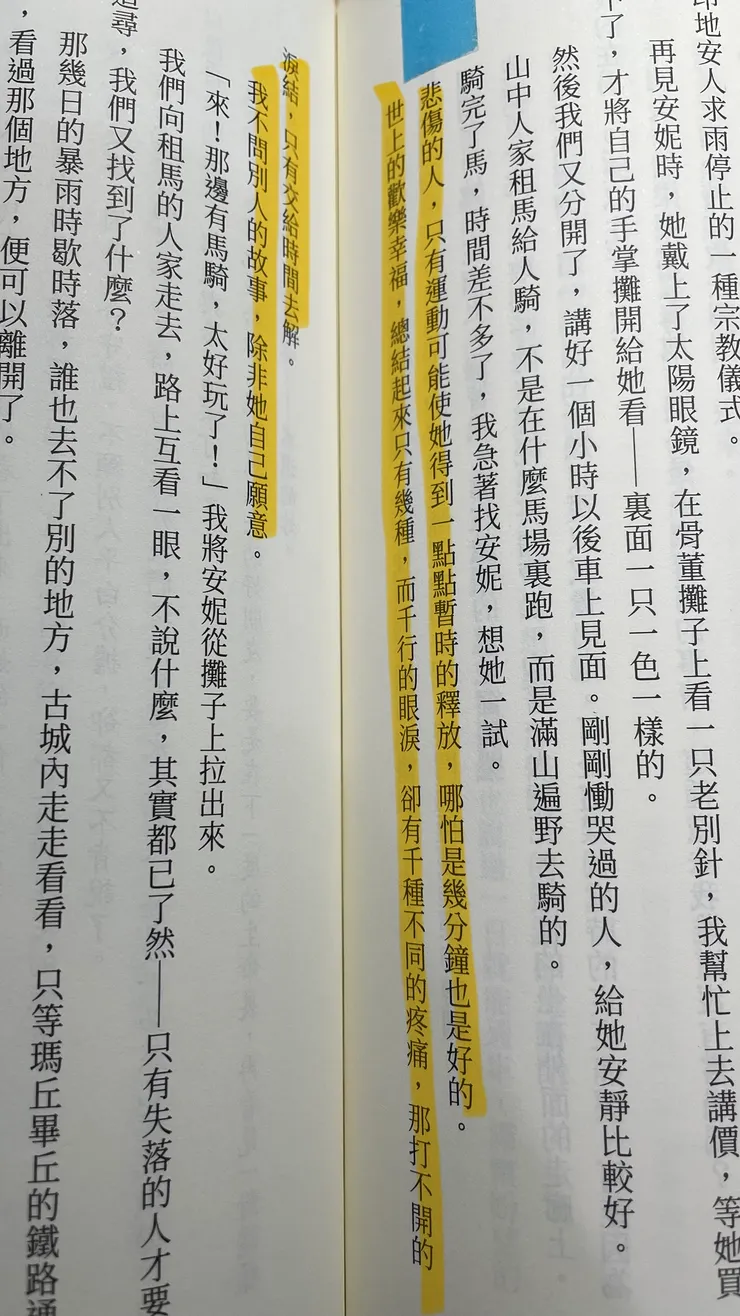 印地安人求雨停止的一種宗教儀式。
再見安妮時，她戴上了太陽眼鏡，在骨董攤子上看一只老別針，我幫忙上去講價，等她買
下了，才將自己的手掌攤開給她看——裏面一只一色一樣的。
然後我們又分開了，講好一個小時以後車上見面。剛剛慟哭過的人，給她安靜比較好。
山中人家租馬給人騎，不是在什麼馬場裏跑，而是滿山遍野去騎的。
騎完了馬，時間差不多了，我急著找安妮，想她一試。
悲傷的人，只有運動可能使她得到一點點暫時的釋放，哪怕是幾分鐘也是好的。
世上的歡樂幸福，總結起來只有幾種，而千行的眼淚，卻有千種不同的疼痛，那打不開的
淚結，只有交給時間去解。
我不問別人的故事，除非她自己願意。
「來！那邊有馬騎，太好玩了！」我將安妮從攤子上拉出來。
我們向租馬的人家走去，路上互看一眼，不說什麼，其實都已了然——只有失落的人才要
追尋，我們又找到了什麼？
那幾日的暴雨時歇時落，誰也去不了別的地方，古城內走走看看，只等瑪丘畢丘的鐵路通
，看過那個地方，便可以離開了。